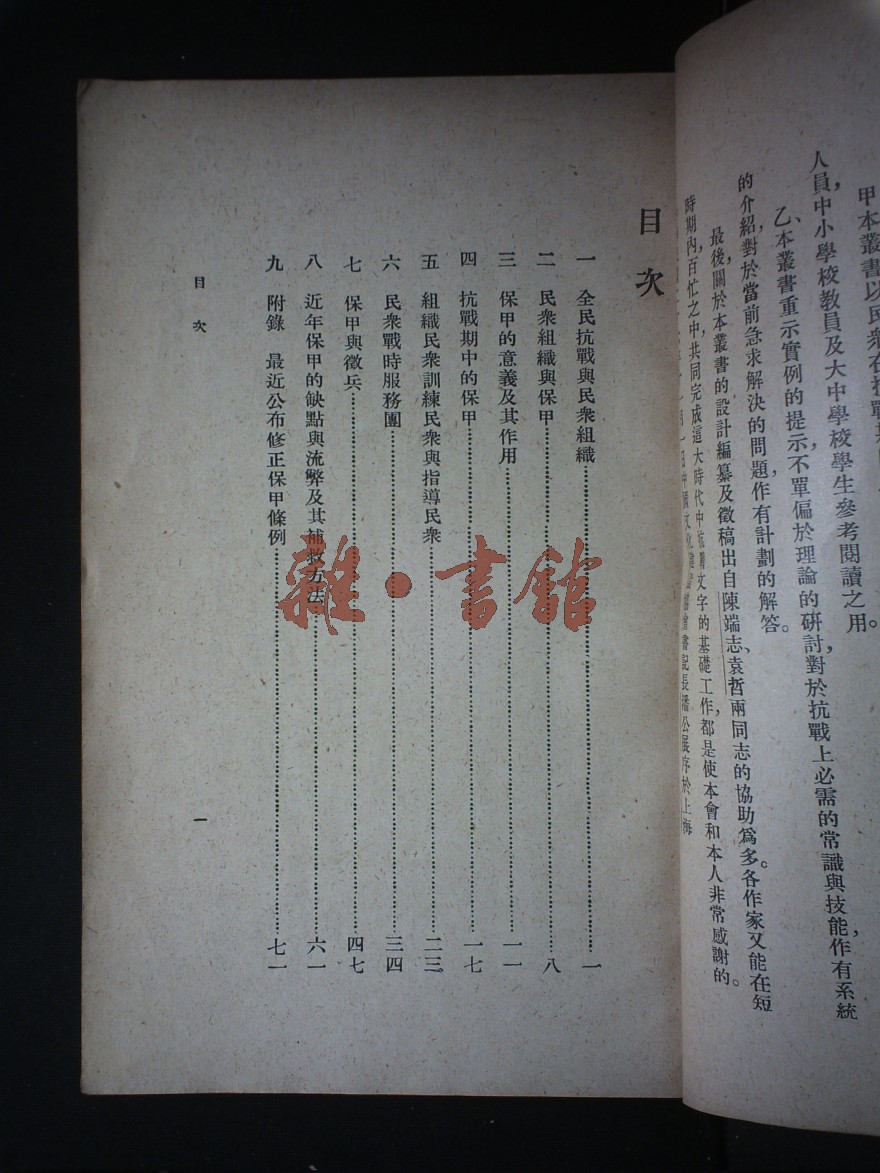 甲本叢書以民衆在抗戰
人員，中小學校教員及大中學校學生參考閱讀之用。
乙、本叢書重示實例的提示，不單偏於理論的研討，對於抗戰上必需的常識與技能，作有系統
的介紹，對於當前急求解決的問題，作有計劃的解答。
最後，關於本叢書的設計編纂及徵稿，出自陳端志、袁哲兩同志的協助爲多。各作家又能在短
時期內，百忙之中，共同完成這大時代中抗戰文字的基礎工作，都是使本會和本人非常感謝的。
書記長潘公展序於上海
目次
一 全民抗戰與民衆組織 一
二 民衆組織與保甲 八
三 保甲的意義及其作用 一一
四 抗戰期中的保甲 一七
五 組織民衆訓練民衆與指導民衆 二三
六 民衆戰時服務團 三四
七 保甲與徵兵 四七
八 近年保甲的缺點與流弊及其補救方法 六一
九 附錄 最近公布修正保甲條例 七一
目次
一
雜·書館